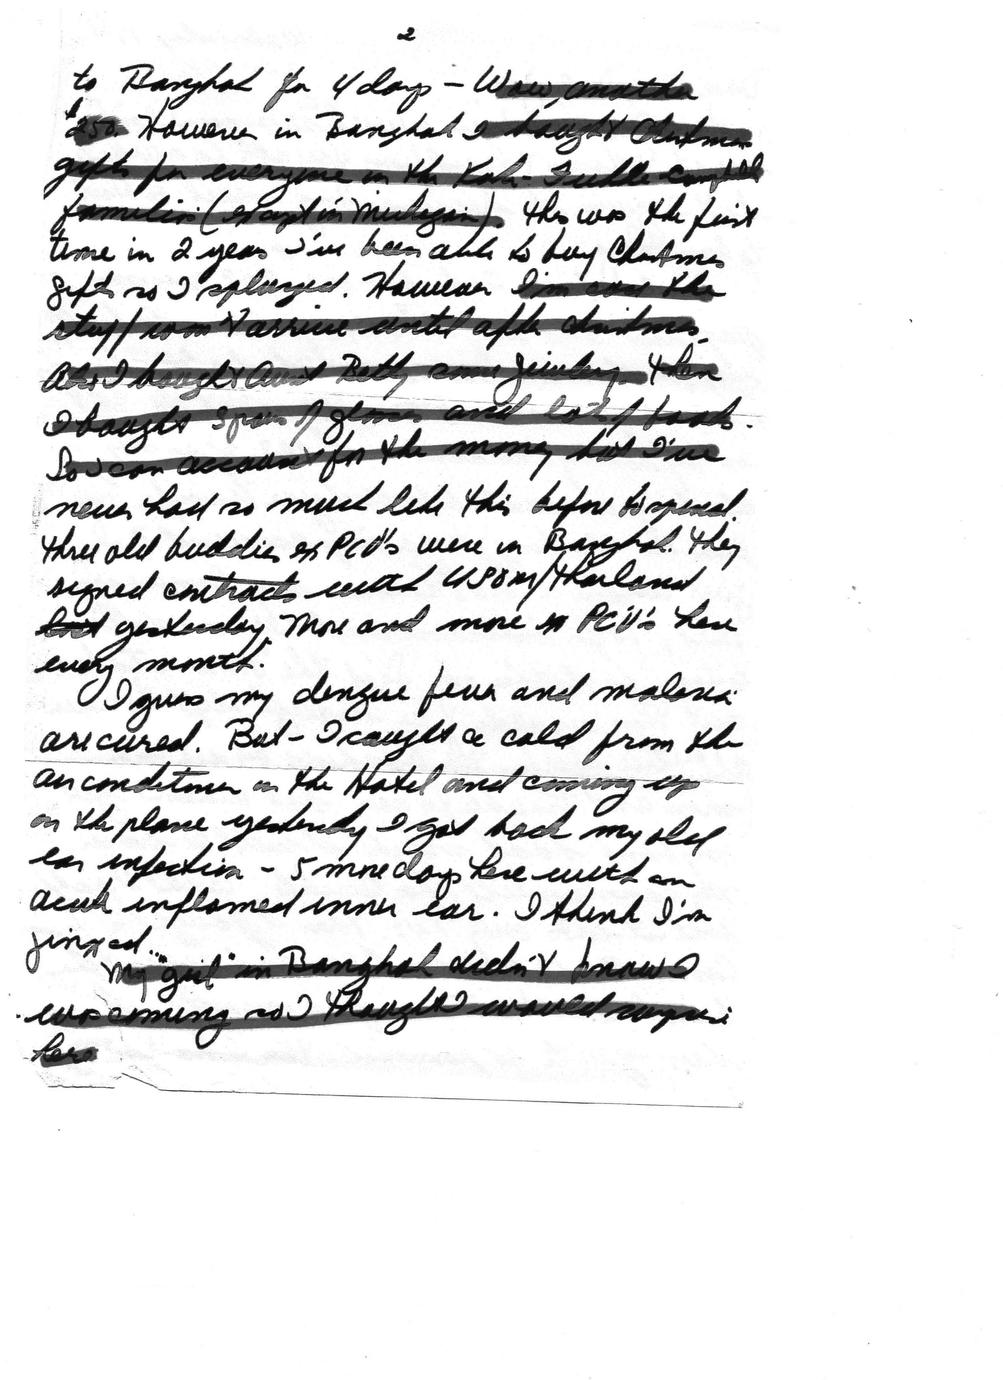 2
to Bangkok for 4 days – Wow, another
$250. However in Bangkok I bought Christmas
gifts for everyone in the Tuttle
families (except in Michigan). This was the first
time in 2 years I've been able to buy Christmas
gifts so I splurged. However I'm sure the
stuff won't arrive until after christmas.
Also I bought Aunt Betty some jewelry. Then
I bought 2 pairs of glasses and lots of books.
So I can account for the money but I've
never had so much like this before to spend.
Three old buddies ex PCV's were in Bangkok. They
signed contracts with USOM/Thailand
yesterday. More and more ex PCV's here
every month.
I guess my dengue fever and malaria
are cured. But – I caught a cold from the
airconditioner in the Hotel and coming up
on the plane yesterday I got back my old
ear infection – 5 more days here with an
acute inflamed inner ear. I think I'm
jinxed...
My "girl" in Bangkok didn't know I
was coming so I thought I would surprise
her